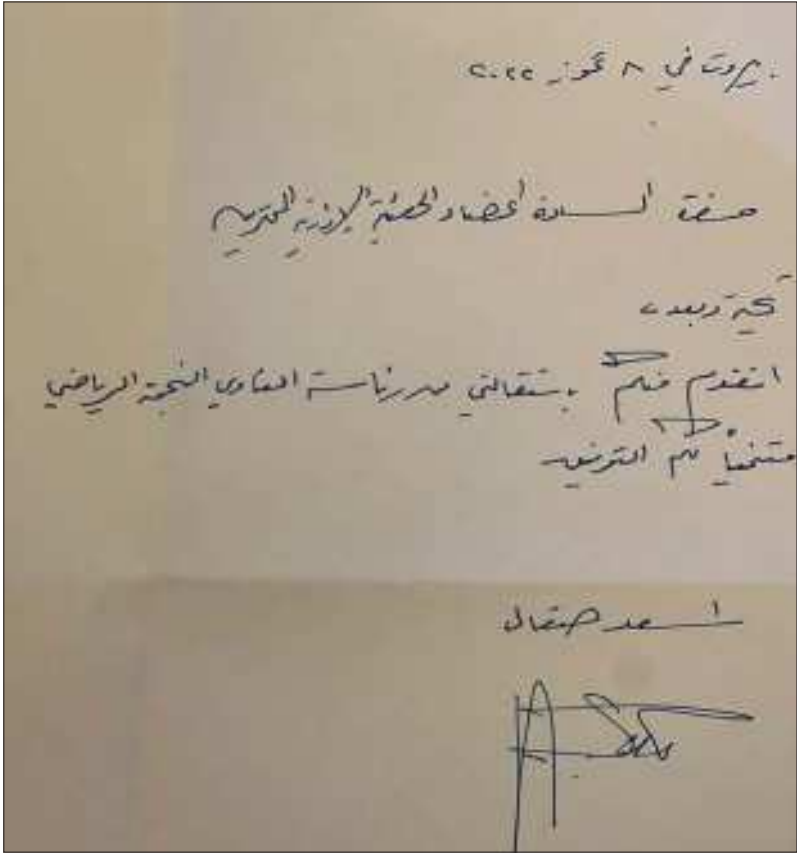 بيروت في ٨ تموز ٢٠٢٢
حضرة السادة أعضاء الهيئة الإدارية المحترمين
تحية وبعد،
اتقدم منكم بإستقالتي من رئاسة النادي النجمة الرياضي
متمنياً لكم التوفيق
أسعد صقال